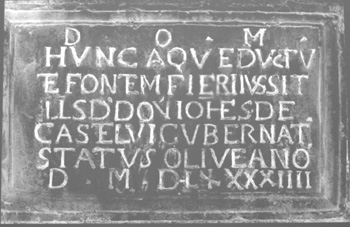 D O M
HUNC AQVEDVCTU
E FONTEM FIERI IVSSIT
ILLS D DOVI OHES DE
CASTELVI GVBERNAT
STATVS OLIVEANO
D M D LXXXIIII